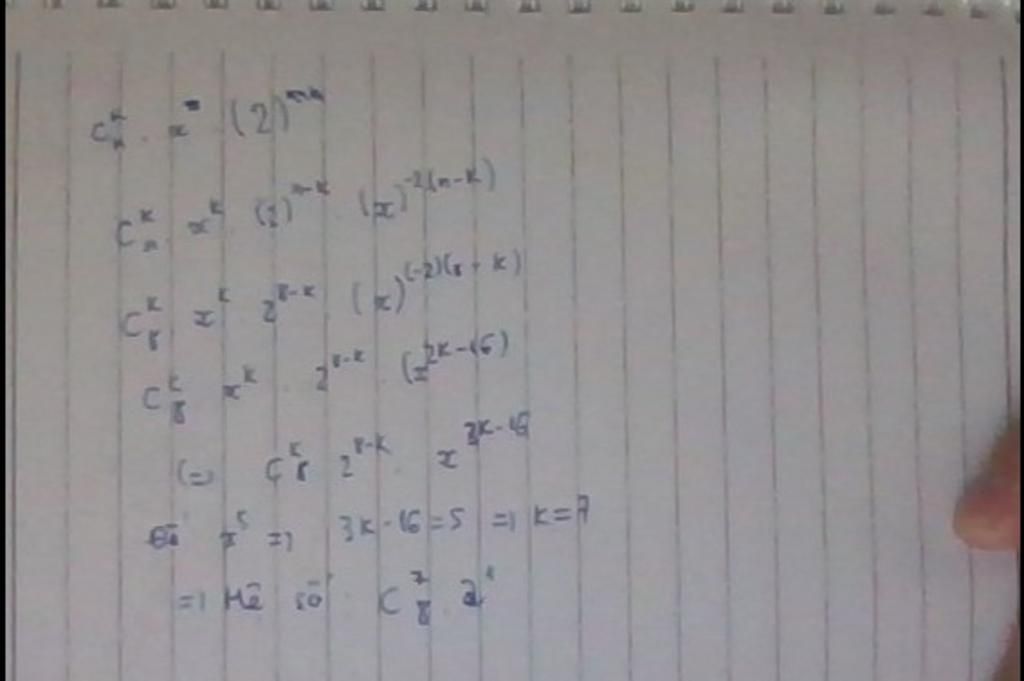 C_n^k . x^n (2)^{n-k}
C_n^k . x^k (2)^{n-k} (x)^{-2(n-k)}
C_8^k x^k 2^{8-k} (x)^{(-2)(8-k)}
C_8^k x^k . 2^{8-k} . (x^{2k-16})
(=) C_8^k 2^{8-k} . x^{3k-16}
Để x^5 => 3k-16=5 => k=7
=> Hệ số . C_8^7 . 2^1